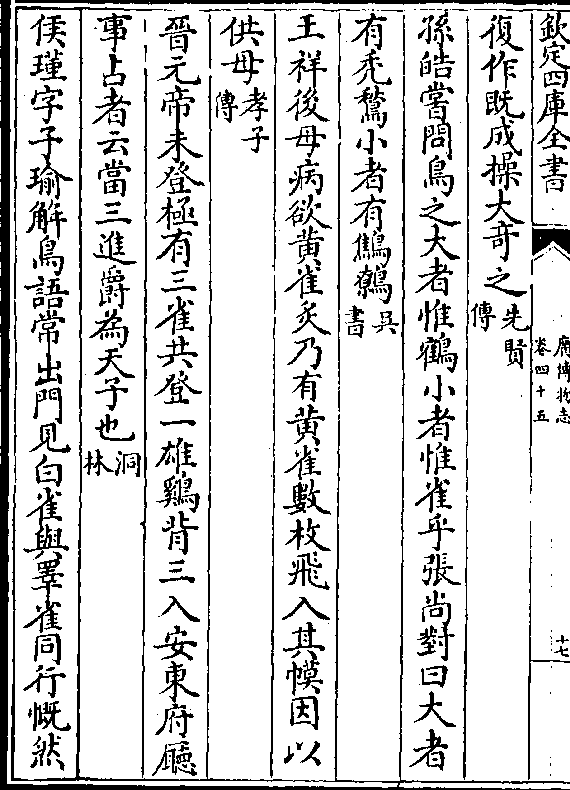 欽定四庫全書
廣博物志
卷四十五
十七
復作既成操大奇之先賢
傳
孫皓嘗問鳥之大者惟鶴小者惟雀乎張尚對曰大者
有禿鶖小者有鷦鷯吳
書
王祥後母病欲黃雀炙乃有黃雀數枚飛入其幙因以
供母孝子
傳
晉元帝未登極有三雀共登一雄鷄背三入安東府廳
事占者云當三進爵為天子也洞
林
侯瑾字子瑜解鳥語常出門見白雀與羣雀同行慨然